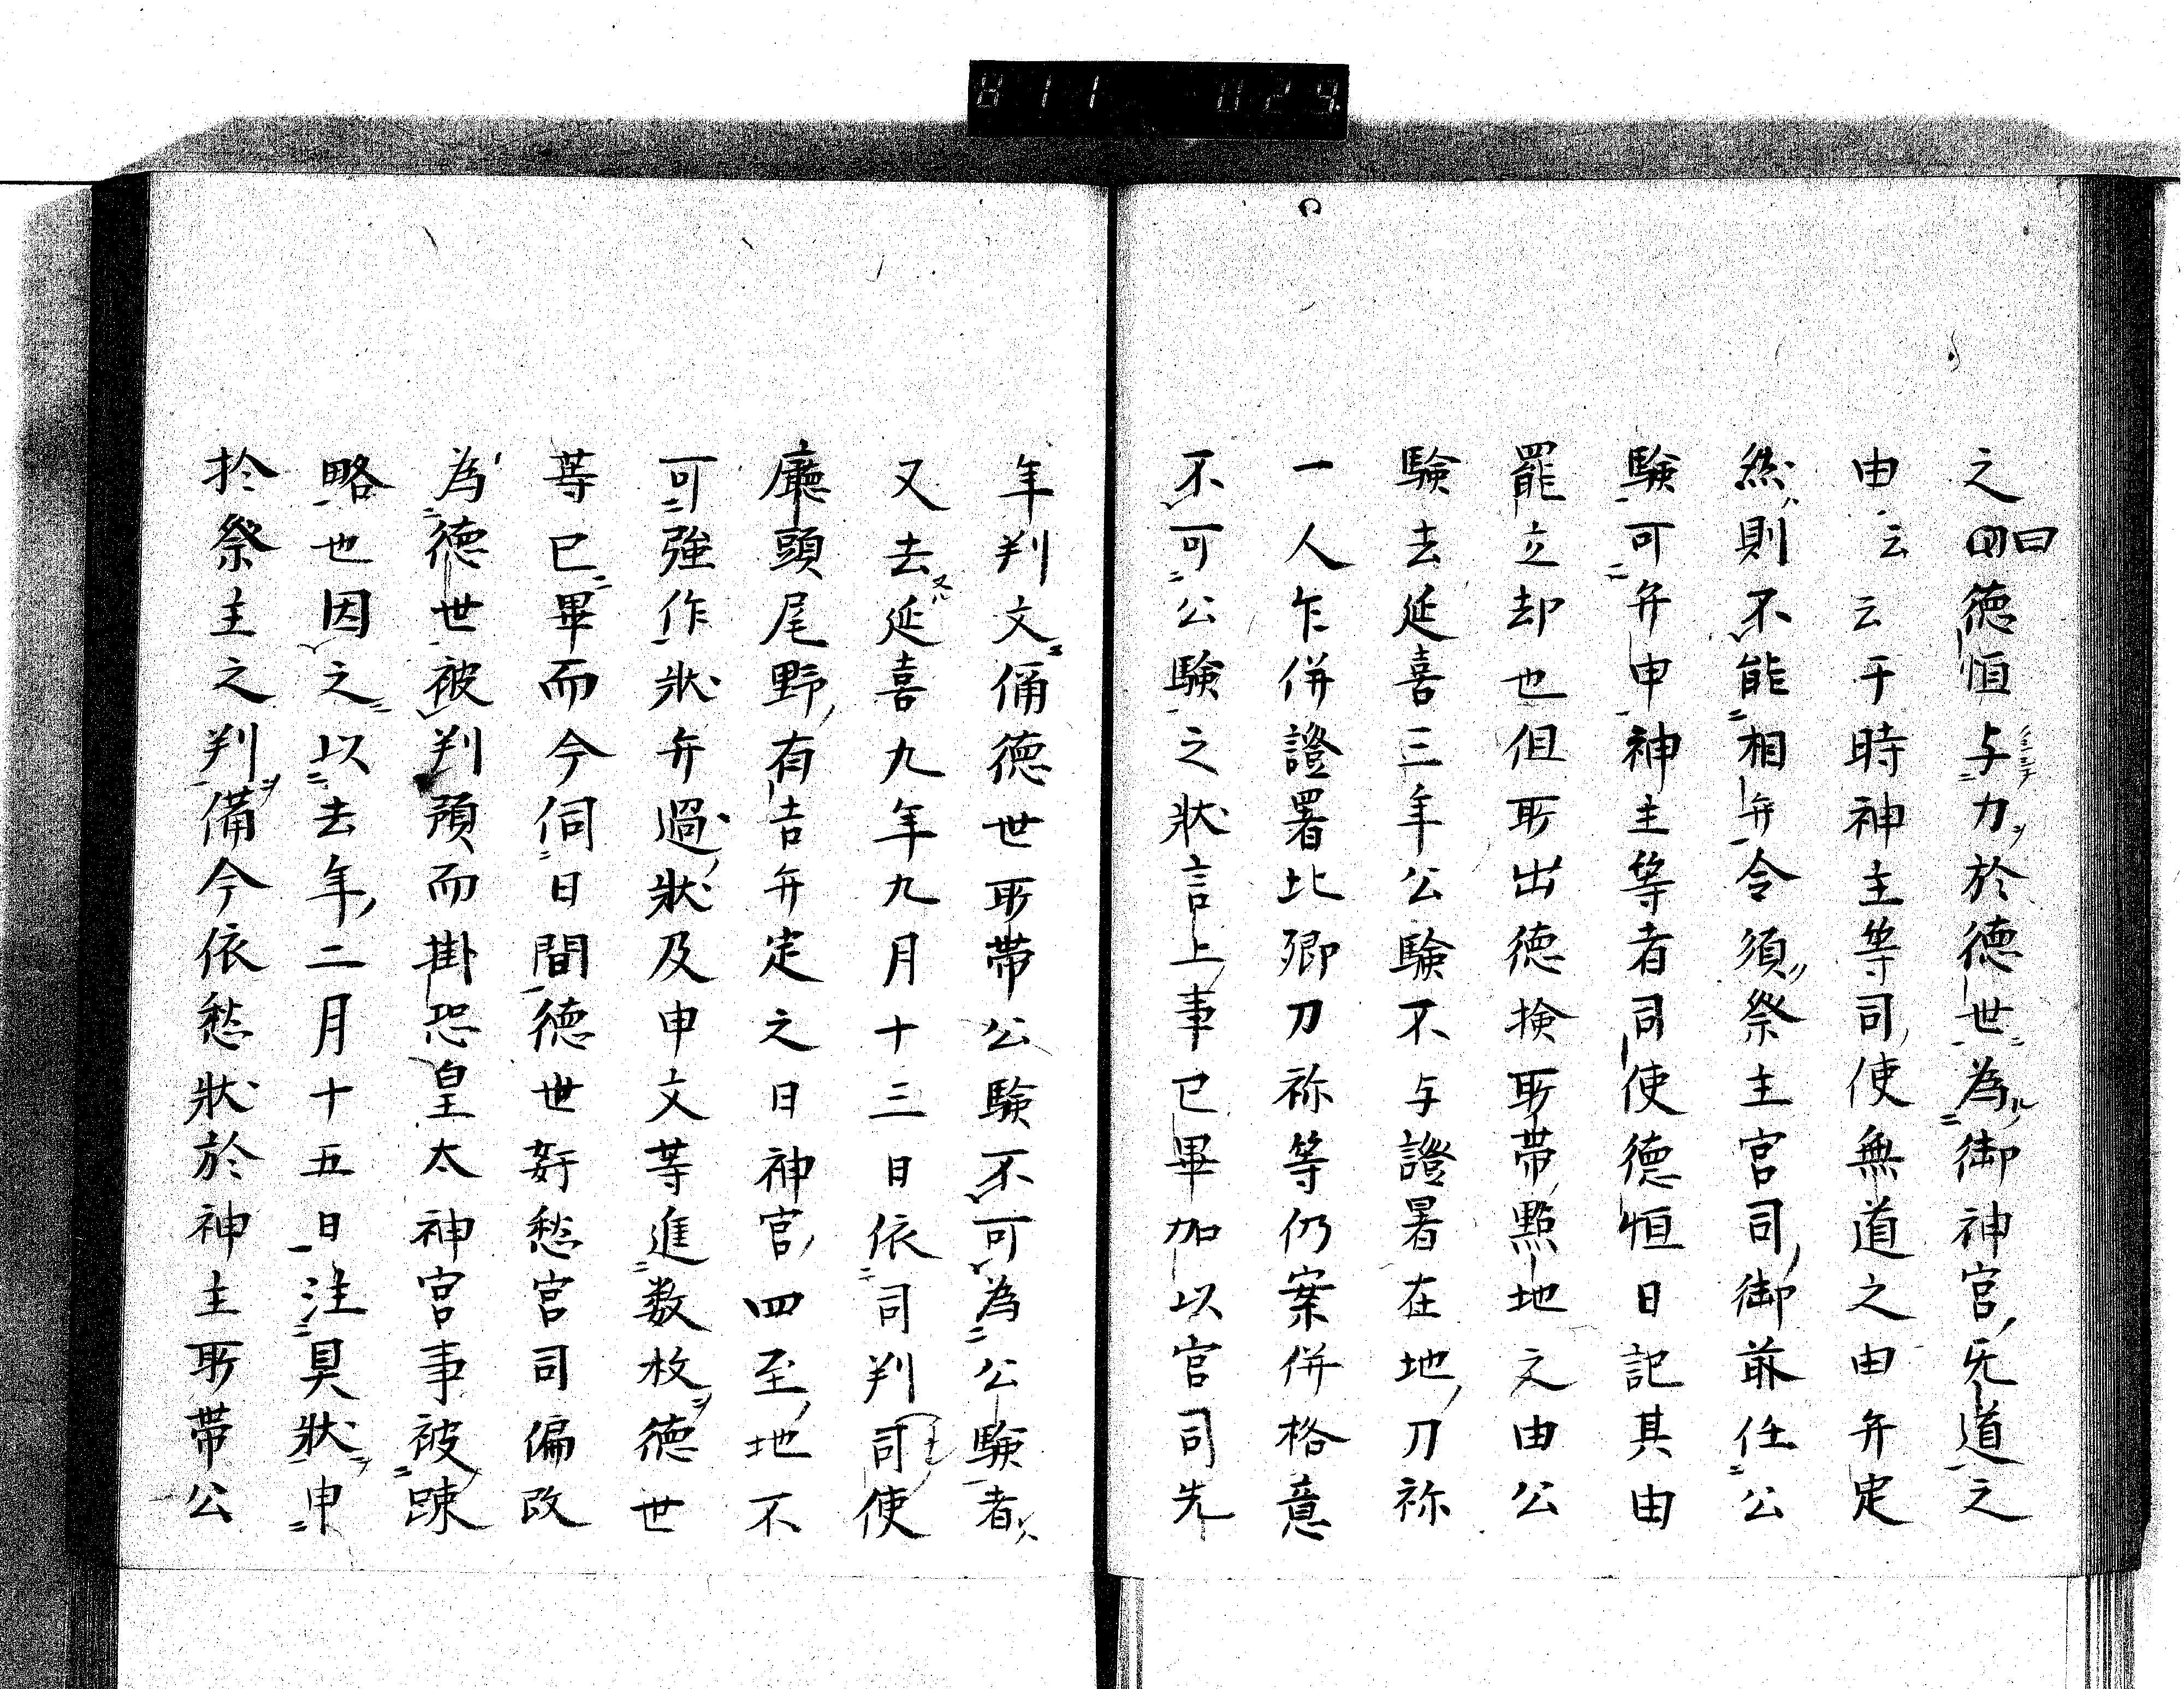 之曰徳恒与力於徳世為御神宮无道之
由云云于時神主等司使無道之由弁定
然則不能相弁令須祭主宮司御前任公
験可弁申神主等者司使徳恒日記其由
罷立却也但所出徳検所帯點地文由公
験去延喜三年公験不与證署在地刀祢
一人乍併證署比郷刀祢等仍案併格意
不可公験之状言上事已畢加以宮司先
年判文偁徳世所帯公験不可為公験者
又去延喜九年九月十三日依司判司使
廳頭尾野有吉弁定之日神宮四至地不
可強作状弁過状及申文等進数枚徳世
等已畢而今伺日間徳世奸愁宮司偏改
為徳世被判預而掛恐皇太神宮事被疎
略也因之以去年二月十五日注具状申
於祭主之判備今依愁状於神主所帯公